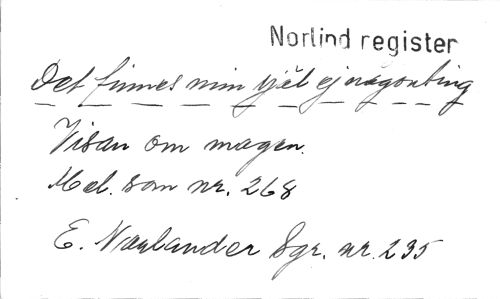 Norlind register
Det finnes min själ ej någonting
Visan om magen.
Mel. som nr. 268
E. Norlander Sgr. nr. 235